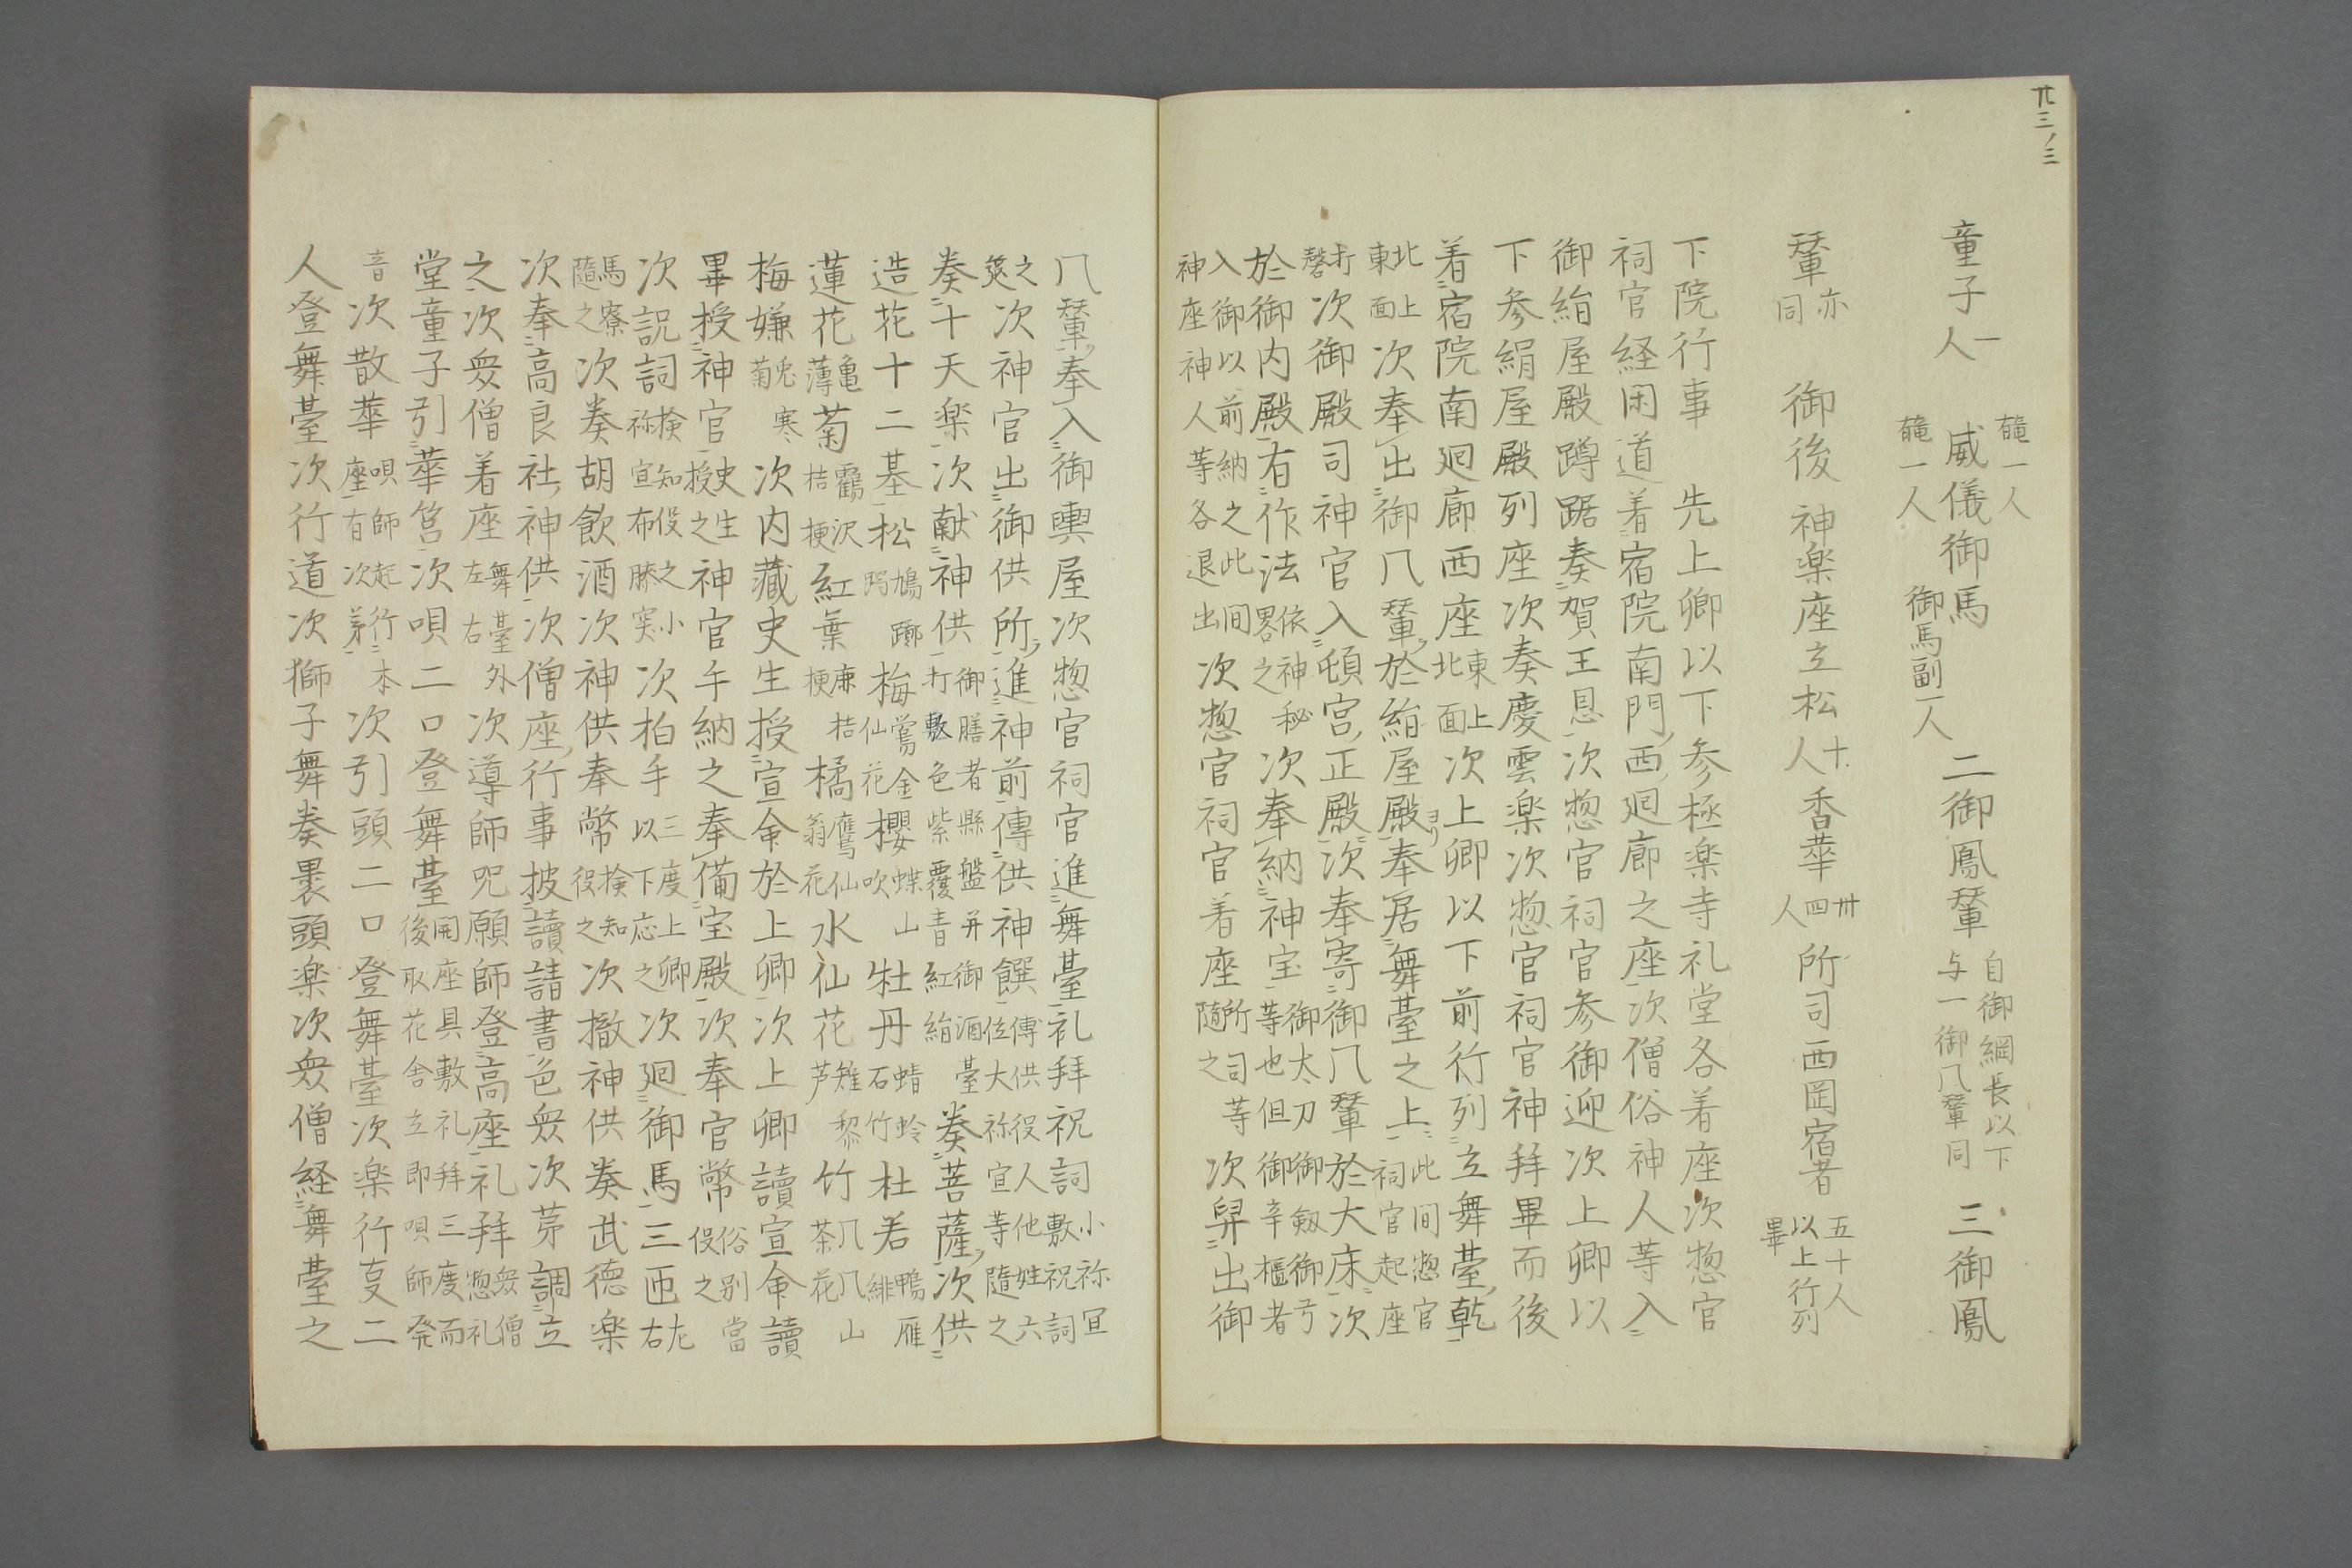 廿三ノ三
童子一人 威儀御馬 䡴一人 䡴一人 御馬副一人 二御鳳輦 自御綱長以下与一御八輦同 三御鳳
輦亦同 御後 神楽座立松十人 香華卅四人 所司西岡宿者 五十人以上行列畢
下院行事 先上卿以下参極楽寺礼堂各着座次惣官
祠官経閑道着宿院南門西廻廊之座次僧俗神人等入
御絹屋殿蹲踞奏賀王恩次惣官祠官参御迎次上卿以
下参絹屋殿列座次奏慶雲楽次惣官祠官神拜畢而後
着宿院南廻廊西座東上北面次上卿以下前行列立舞䑓乾
北上東面次奉出御八輦於絹屋殿ヨリ奉居舞䑓之上此間惣官祠官起座
打磬次御殿司神官入頓宮正殿次奉寄御八輦於大床次
於御内殿有作法依神秘畧之次奉納神宝御太刀御剱御弓等也但御辛櫃者
入御以前納之此間神座神人等各退出次惣官祠官着座所司等随之次舁出御
八輦奉入御輿屋次惣官祠官進舞䑓礼拜祝詞小祢宜敷祝詞
之𥱋次神官出御供所進神前傳供神饌傳供役人他姓六位大祢宜等随之
奏十天楽次献神供御膳者懸盤并御酒䑓打敷色紫覆青紅絹奏菩薩次供
造花十二基松鳩躑躅梅鴬金仙花櫻蝶山吹牡丹蜻蛉石竹杜若鴨雁緋
蓮花亀薄菊鸖沢桔梗紅葉鹿桔梗橘鷹仙翁花水仙花雉藜芦竹八八山茶花
梅嫌兎寒菊次内藏史生授宣命於上卿次上卿讀宣命讀
畢授神官史生授之神官乍納之奉備宝殿次奉官幣俗別當役之
次説詞検知役之小祢宣布勝突次拍手三度上卿以下応之次廻御馬三匝左右
馬寮随之次奏胡飲酒次神供奉幣検知役之次撤神供奏武德楽
次奉高良社神供次僧座行事披讀請書色衆次第調立
之次衆僧着座舞䑓外左右次導師呪願師登高座礼拜衆僧惣礼
堂童子引華筥次唄二口登舞䑓開座具敷礼拜三度而後取花舎立即唄師発
音次散華唄師起行本座有次第次引頭二口登舞䑓次楽行㕝二
人登舞䑓次行道次獅子舞奏裹頭楽次衆僧経舞䑓之